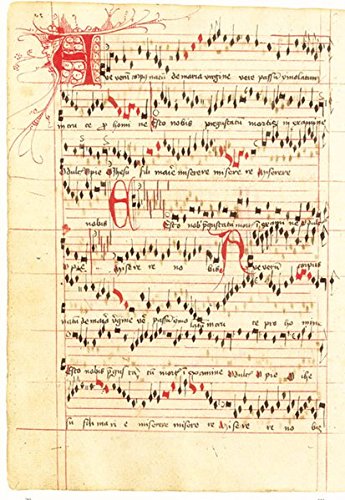 Ave verum corpus natu de maria virgine vere passum imolatum
in cruce p homine Esto nobis pregustatu mortis in examine
O dulcis O pie O Jhesu fili marie miserere miserere miserere
nobis Esto nob pregustatu mort i examine O dulc
O pie miserere re nobis Ave verum corpus
natu de maria virgine vere passum imolatum in cruce pro homine
Esto nobis pregustatu mort i examine O dulc O pie O jhe
su fili marie miserere miserere miserere re nobis